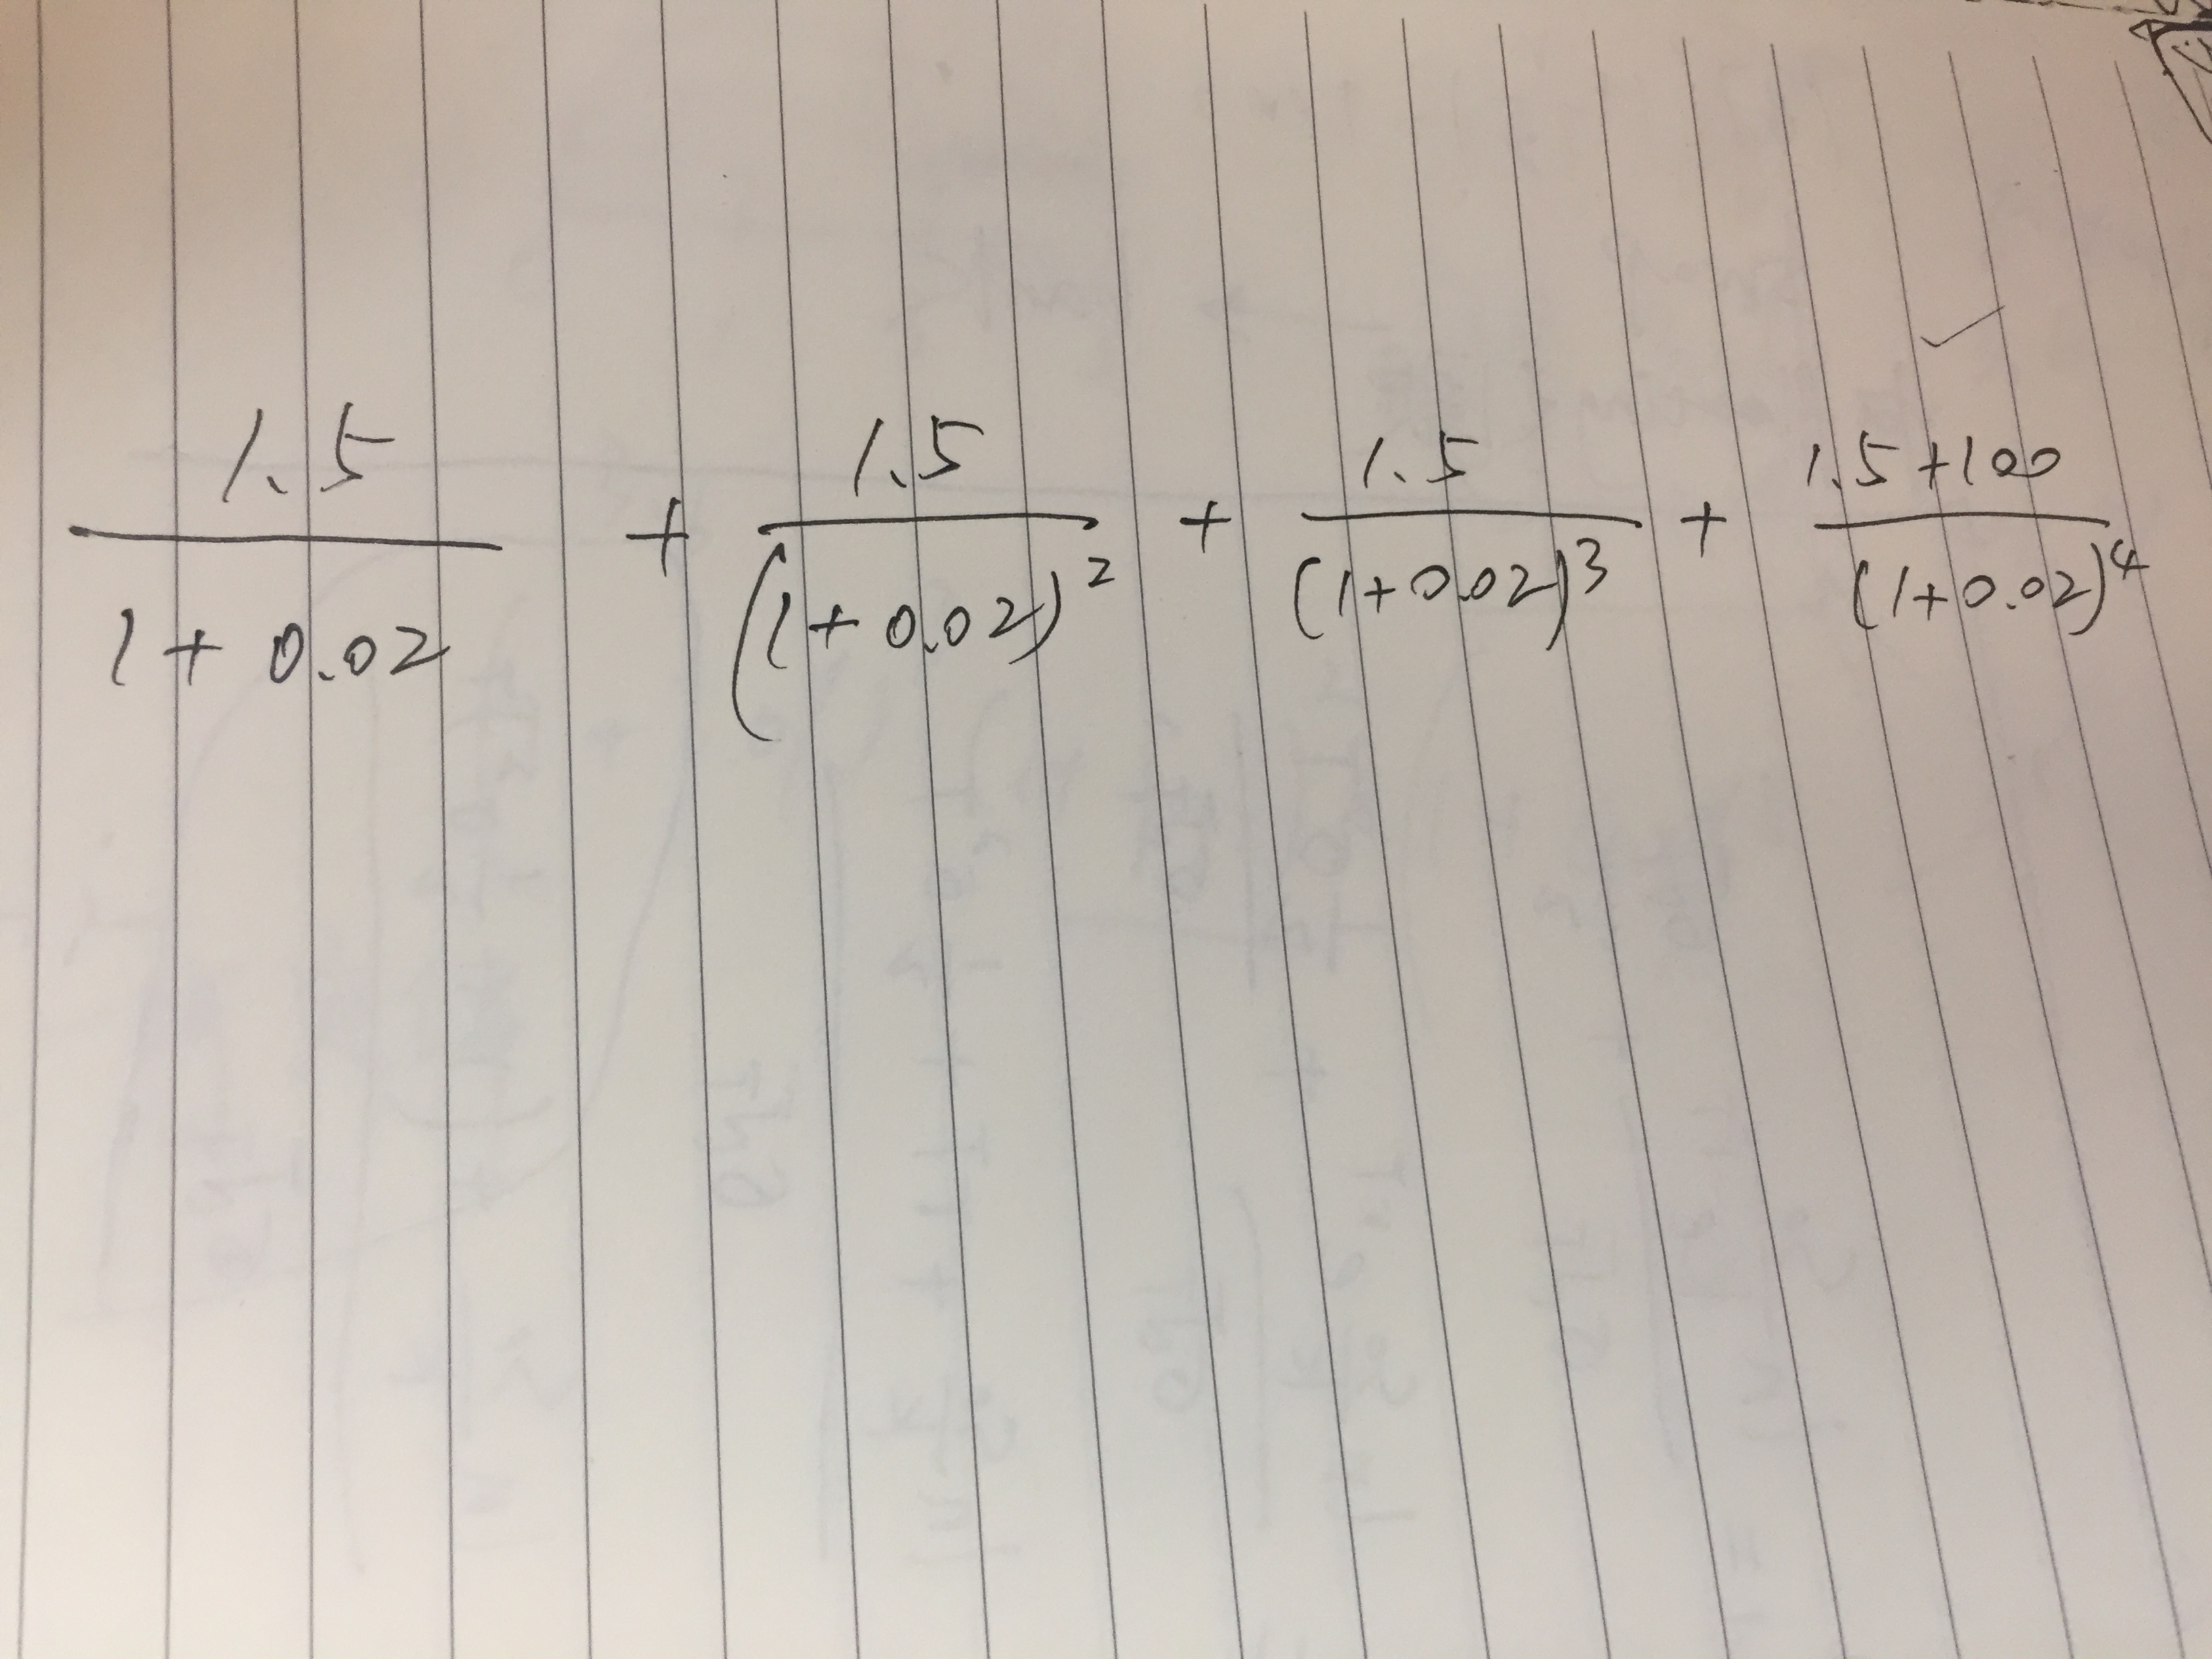 1.5/(1+0.02) + 1.5/(1+0.02)² + 1.5/(1+0.02)³ + (1.5+100)/(1+0.02)⁴